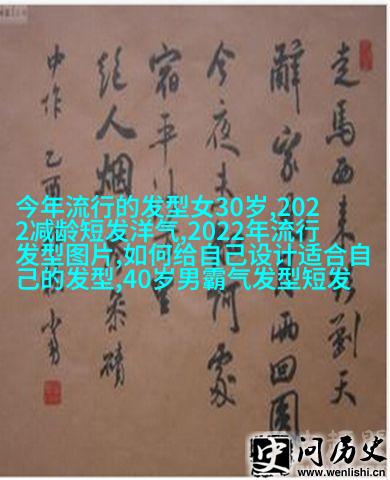 走馬西來到天
辭家月兩回圓
今夜未何處
宿平里
絕人烟岑參磧
中作 乙酉
今年流行的发型女30岁,202
2减龄短发洋气,2022年流行
发型图片,如何给自己设计适合自
己的发型,40岁男霸气发型短发
史问历史
www.wenlishi.com